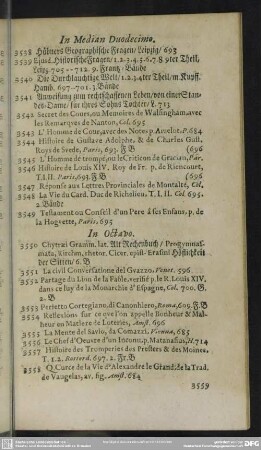 In Median Duodecimo.
3538 Hübners Geographische Fragen/ Leipzig/ 693
3539 Ejusd. Historische Fragen/ 1. 2. 3. 4. 5. 6. 7. 8. 9ter Theil,
Leipz. 705 -- 712. 9. Frantz. Bände
3540 Die Durchlauchtige Welt/ 1. 2. 3. 4ter Theil/ m. Kupff.
Hamb. 697-701. 3. Bände
3541 Anweisung zum rechtschaffenen Leben/ von einer Stan-
des-Dame/ für ihres Sohns Tochter/ L. 713
3542 Secret des Cours, ou Memoires de Walsingham, avec
les Remarques de Nanton, Col. 695
3543 L'Homme de Cour, avec des Notes p. Amelot. P. 684
3544 Histoire de Gustave Adolphe, & de Charles Gust.
Roys de Svede, Paris, 695. F B (696
3545 L'Homme de trompé, ou le Criticon de Gracian, Par.
3546 Histoire de Louis XIV. Roy de Fr. p. de Riencourt,
T. I. II. Paris, 693. F. B (696
3547 Réponse aux Lettres Provinciales de Montalte, Col.
3548 La Vie du Card. Duc de Richelieu. T. I. II. Col. 695.
2. Bände
3549 Testament ou Conseil d'un Pere à ses Enfans, p. de la
Hoguette, Paris, 695
In Octavo.
3550 Chytræi Gramm. lat. Alt Rechenbuch/ Progymnas-
mata, Viechm. rhetor. Cicer. epist. Erasmi Höflichkeit
der Sitten/ 6. B
3551 La civil Conversatione del Gvazzo, Venet. 596
3552 Partage du Lion de la Fable, verifié p. le R. Louis XIV,
dans celuy de la Monarchie d'Espagne, Col. 700. G.
2. B
3553 Perfetto Cortegiano, di Canonhiero, Roma, 609. F. B
3554 Reflexions sur ce que l'on appelle Bonheur & Mal-
heur en Matiere de Loteries, Amst. 696
3555 La Mente del Savio, da Comazzi, Vienna, 685
3556 Le Chef d'Oeuvre d'un Inconnu, p. Matanasius, H. 714
3557 Histoire des Tromperies des Prestres & des Moines.
T. 1. 2. Rotterd. 697. 2. Fr. B
3558 Q. Curce de la Vie d'Alexandre le Grand, de la Trad.
de Vaugelas, av. fig. Amst. 684
3559